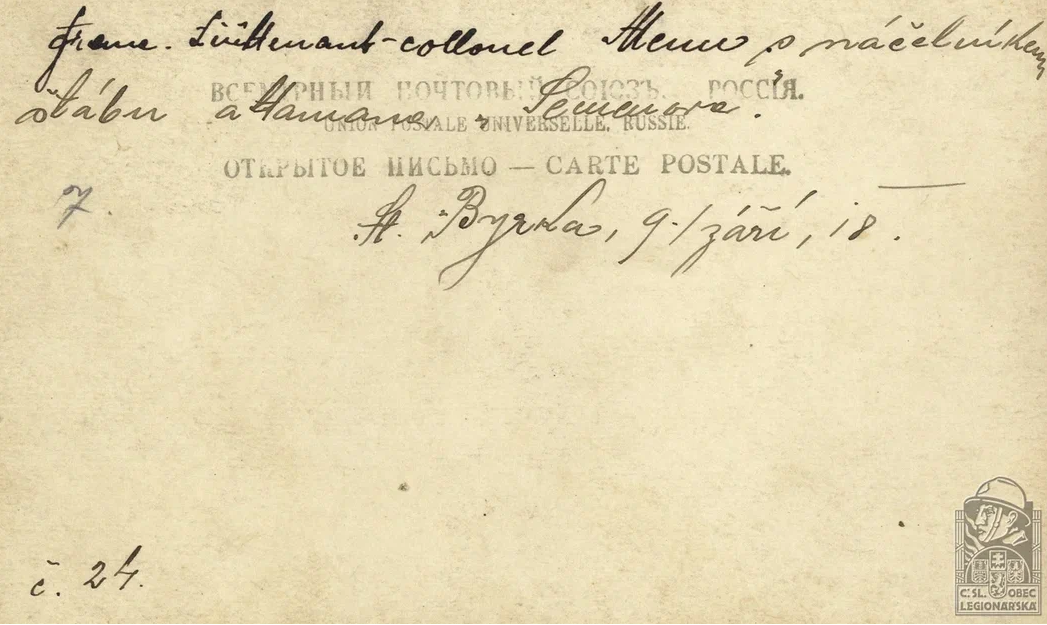 franc. Lüttenant-collonel Menu s náčelníkem
štábu attamana Semenova.
ВСЕМІРНЫЙ ПОЧТОВЫЙ СОЮЗЪ. РОССІЯ.
UNION POSTALE UNIVERSELLE. RUSSIE.
ОТКРЫТОЕ ПИСЬМО — CARTE POSTALE.
7.
St. Byrka, 9./září, 18.
č. 24.
Č:SL. OBEC
LEGIONÁŘSKÁ